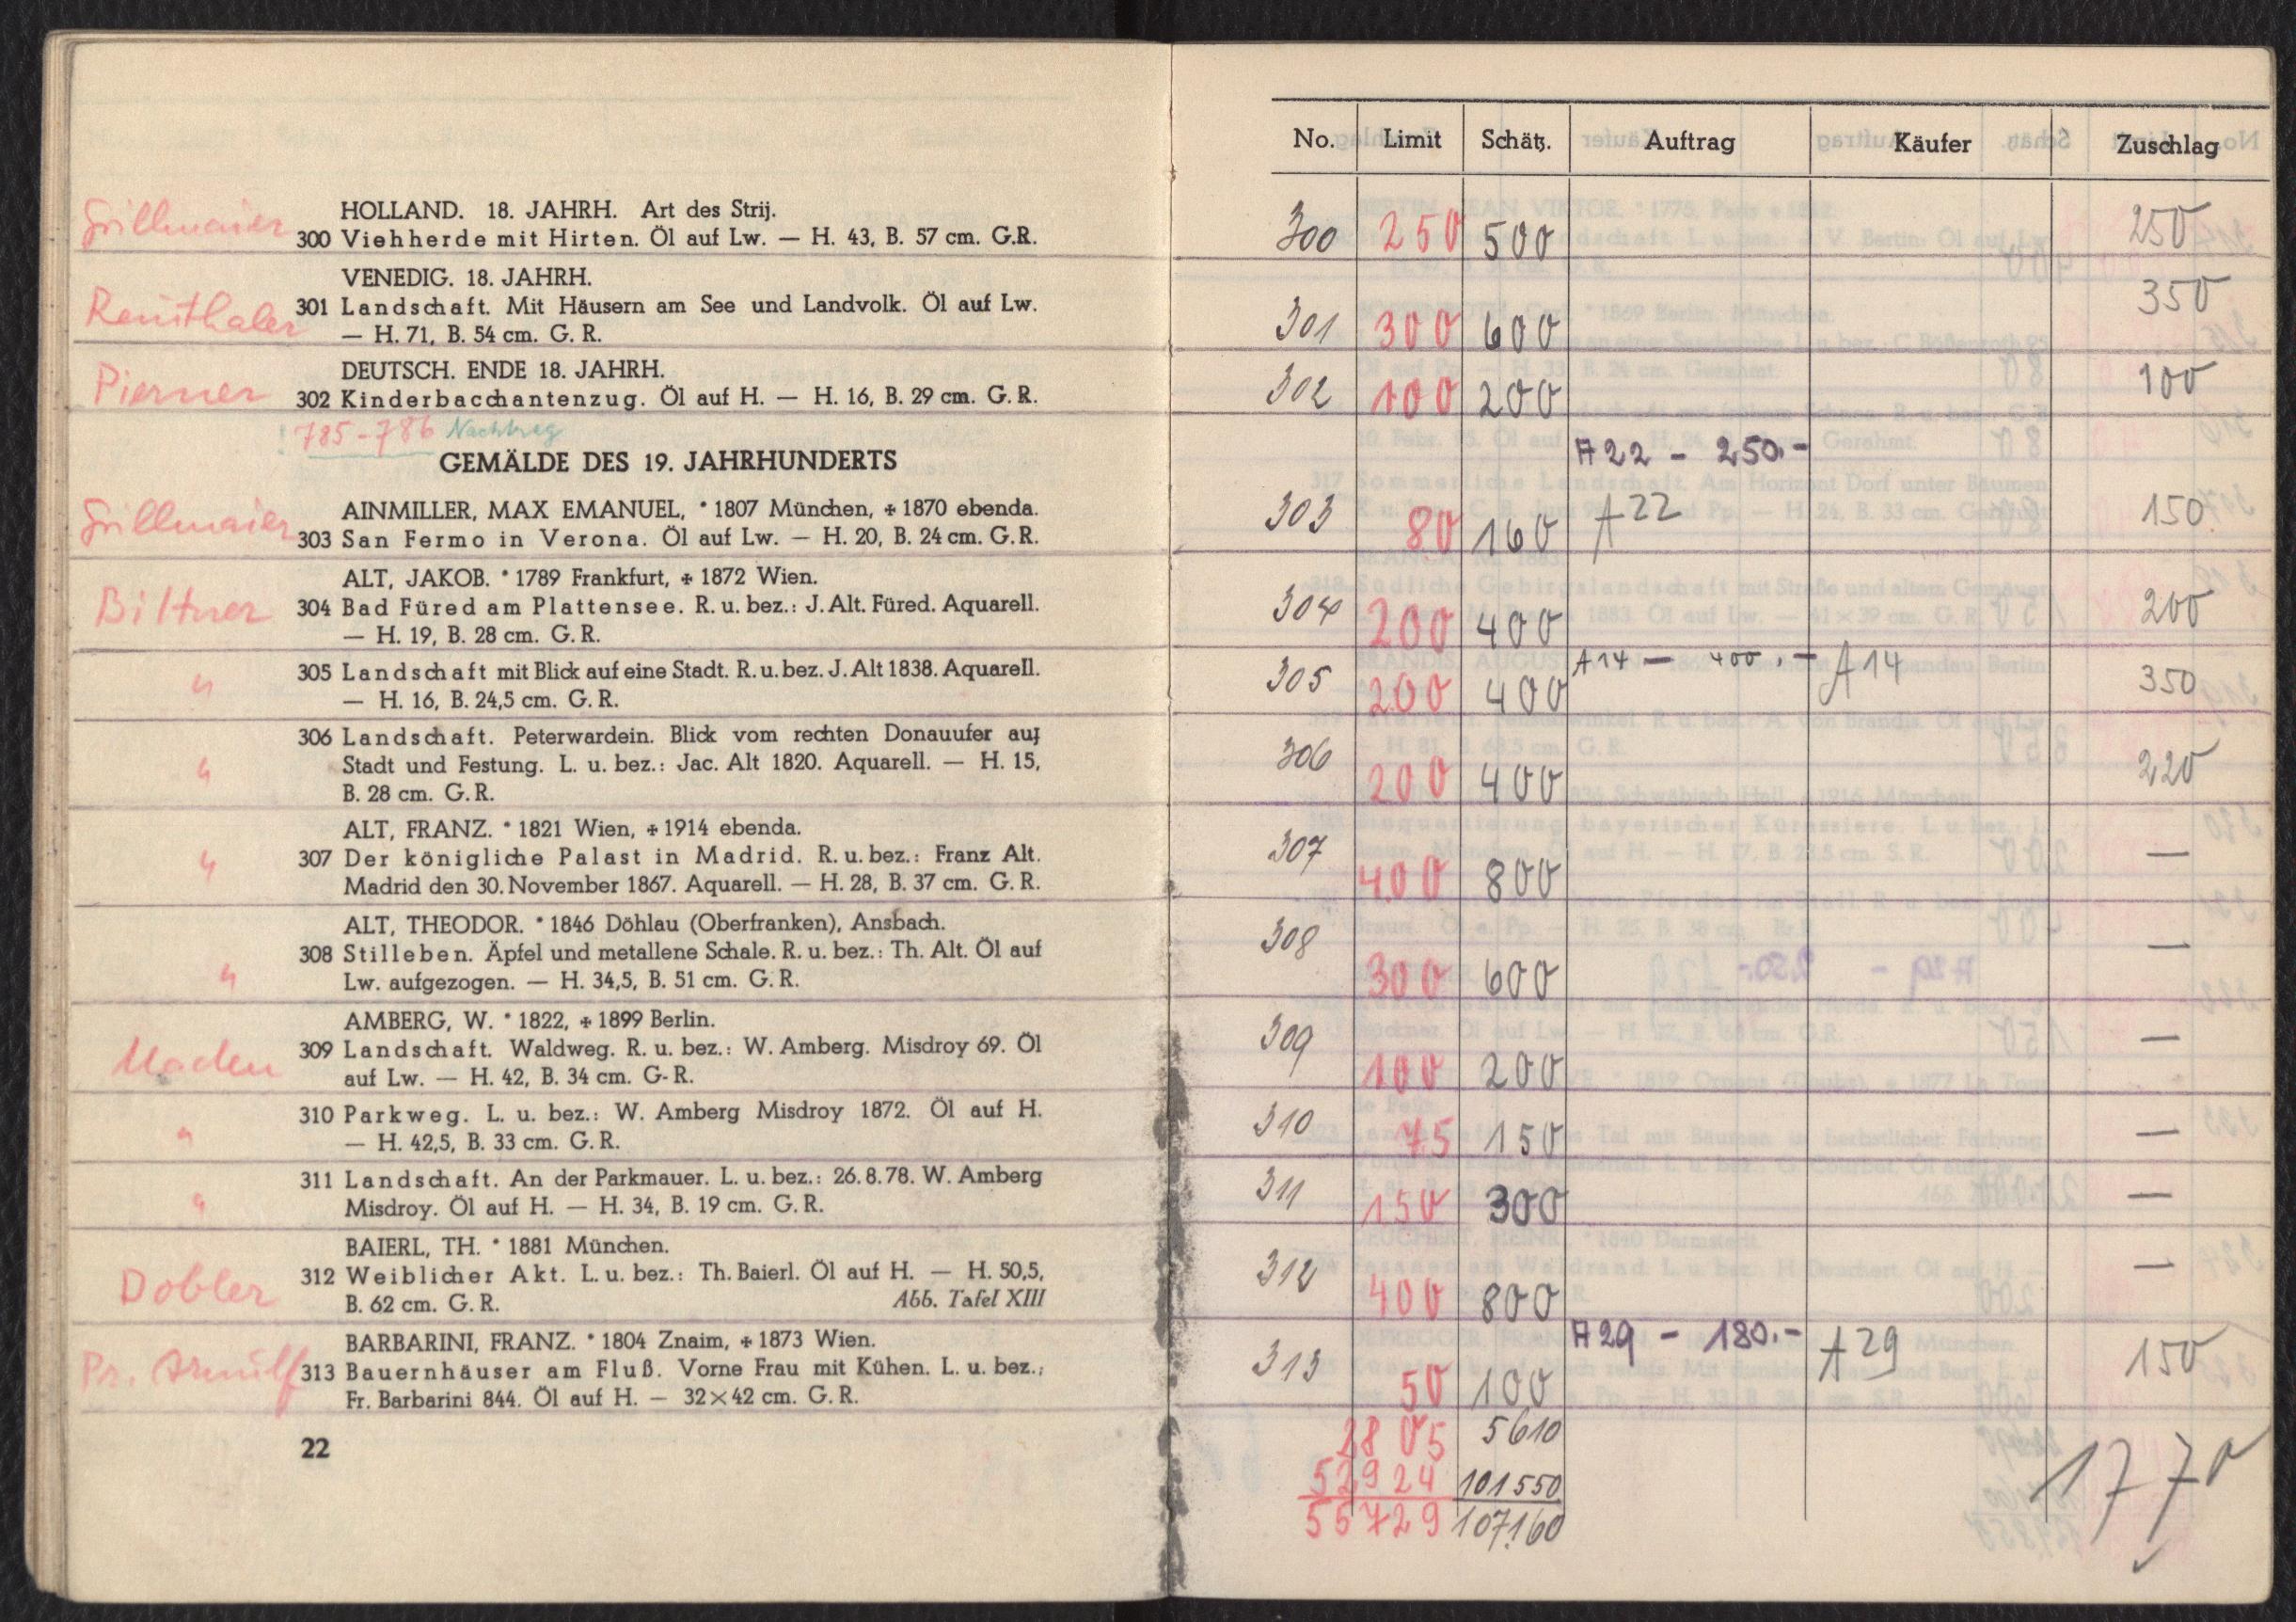 Grillmaier
HOLLAND. 18. JAHRH. Art des Strij.
300 Viehherde mit Hirten. Öl auf Lw. — H. 43, B. 57 cm. G.R.
VENEDIG. 18. JAHRH.
301 Landschaft. Mit Häusern am See und Landvolk. Öl auf Lw.
— H. 71, B. 54 cm. G. R.
DEUTSCH. ENDE 18. JAHRH.
Pierner
302 Kinderbacchantenzug. Öl auf H. — H. 16, B. 29 cm. G. R.
! 785-786 Nachtrag
GEMÄLDE DES 19. JAHRHUNDERTS
Grillmaier
AINMILLER, MAX EMANUEL, * 1807 München, + 1870 ebenda.
303 San Fermo in Verona. Öl auf Lw. — H. 20, B. 24 cm. G. R.
ALT, JAKOB. * 1789 Frankfurt, + 1872 Wien.
Bittner
304 Bad Füred am Plattensee. R. u. bez.: J. Alt. Füred. Aquarell.
— H. 19, B. 28 cm. G. R.
"
305 Landschaft mit Blick auf eine Stadt. R. u. bez. J. Alt 1838. Aquarell.
— H. 16, B. 24,5 cm. G. R.
306 Landschaft. Peterwardein. Blick vom rechten Donauufer auf
"
Stadt und Festung. L. u. bez.: Jac. Alt 1820. Aquarell. — H. 15,
B. 28 cm. G. R.
ALT, FRANZ. * 1821 Wien, + 1914 ebenda.
"
307 Der königliche Palast in Madrid. R. u. bez.: Franz Alt.
Madrid den 30. November 1867. Aquarell. — H. 28, B. 37 cm. G. R.
ALT, THEODOR. * 1846 Döhlau (Oberfranken), Ansbach.
308 Stilleben. Äpfel und metallene Schale. R. u. bez.: Th. Alt. Öl auf
"
Lw. aufgezogen. — H. 34,5, B. 51 cm. G. R.
AMBERG, W. * 1822, + 1899 Berlin.
309 Landschaft. Waldweg. R. u. bez.: W. Amberg. Misdroy 69. Öl
auf Lw. — H. 42, B. 34 cm. G- R.
310 Parkweg. L. u. bez.: W. Amberg Misdroy 1872. Öl auf H.
"
— H. 42,5, B. 33 cm. G. R.
311 Landschaft. An der Parkmauer. L. u. bez.: 26. 8. 78. W. Amberg
"
Misdroy. Öl auf H. — H. 34, B. 19 cm. G. R.
BAIERL, TH. * 1881 München.
Dobler
312 Weiblicher Akt. L. u. bez.: Th. Baierl. Öl auf H. — H. 50,5,
B. 62 cm. G. R. Abb. Tafel XIII
BARBARINI, FRANZ. * 1804 Znaim, + 1873 Wien.
Pr. Arnulf
313 Bauernhäuser am Fluß. Vorne Frau mit Kühen. L. u. bez.:
Fr. Barbarini 844. Öl auf H. — 32 × 42 cm. G. R.
22
No. Limit Schätz. Auftrag Käufer Zuschlag
300 250 500 250
301 300 600 350
302 100 200 100
A 22 - 250.-
303 80 160 A 22 150
304 200 400 200
305 200 400 A 14 — 400.- A 14 350
306 200 400 220
307 400 800 —
308 300 600 —
309 100 200 —
310 75 150 —
311 150 300 —
312 400 800 —
313 50 100 A 29 - 180.- A 29 150
2805 5610
52924 101550
55729 107.160
1770